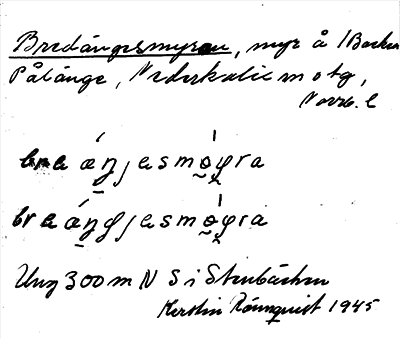 Bredängesmyran, myr å /Backen
Pålänge, Nederkalix m o tg,
Norrb. l
bre äŋjesmo̤φra
bre äŋɟjesmo̤φra
Ung 300 m N S i Stenbäcken
Kerstin Rönnquist 1945